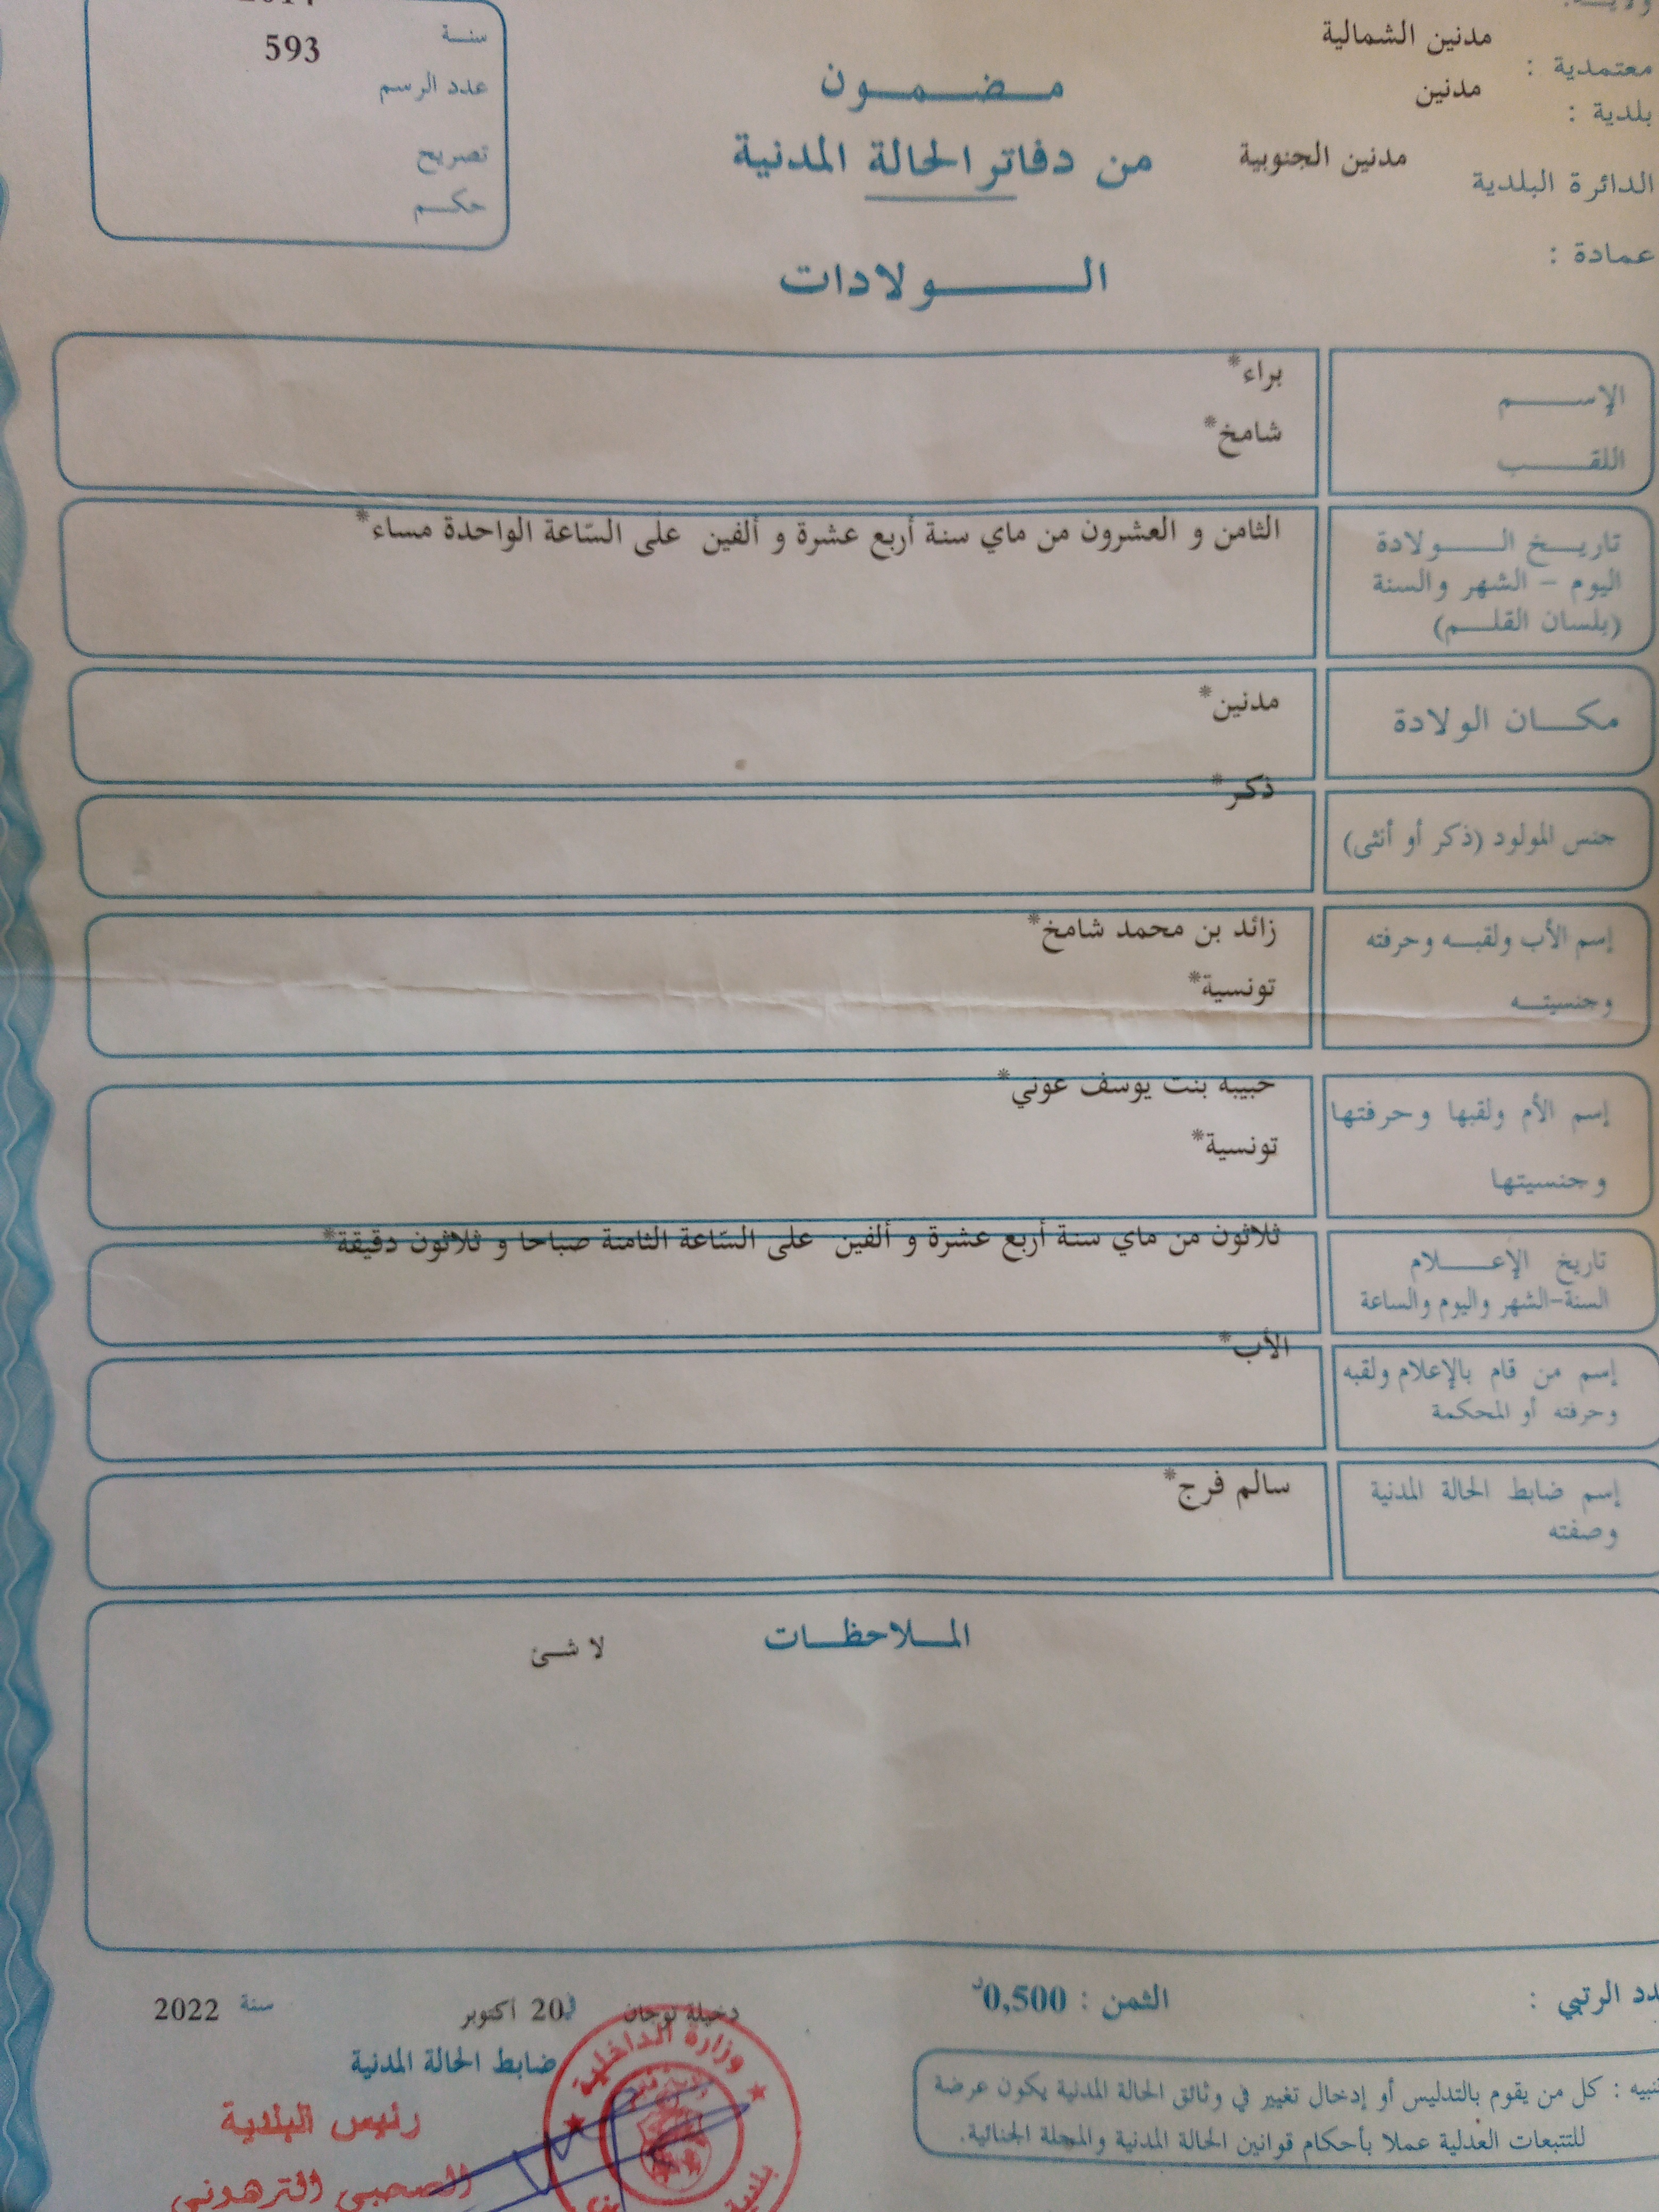 مدنين الشمالية
معتمدية :
مدنين
بلدية :
مدنين الجنوبية
الدائرة البلدية
عمادة :
مضمون
من دفاتر الحالة المدنية
الولادات
سنة
593
عدد الرسم
تصريح
حكم
الإسم
براء*
اللقب
شامخ*
تاريخ الولادة
اليوم - الشهر والسنة
(بلسان القلم)
الثامن و العشرون من ماي سنة أربع عشرة و ألفين على السّاعة الواحدة مساء*
مكان الولادة
مدنين*
جنس المولود (ذكر أو أنثى)
ذكر*
إسم الأب ولقبه وحرفته
وجنسيته
زائد بن محمد شامخ*
تونسية*
إسم الأم ولقبها وحرفتها
وجنسيتها
حبيبه بنت يوسف عوني*
تونسية*
تاريخ الإعلام
السنة-الشهر واليوم والساعة
ثلاثون من ماي سنة أربع عشرة و ألفين على السّاعة الثامنة صباحا و ثلاثون دقيقة*
إسم من قام بالإعلام ولقبه
وحرفته أو المحكمة
الأب*
إسم ضابط الحالة المدنية
وصفته
سالم فرج*
الملاحظات
لا شئ
الرتبي :
الثمن : 0,500د
دخيلة توجان في 20 أكتوبر سنة 2022
ضابط الحالة المدنية
رئيس البلدية
الصحبي الترهوني
وزارة الداخلية
بلدية
تنبيه : كل من يقوم بالتدليس أو إدخال تغيير في وثائق الحالة المدنية يكون عرضة
للتتبعات العدلية عملا بأحكام قوانين الحالة المدنية والمجلة الجنائية.